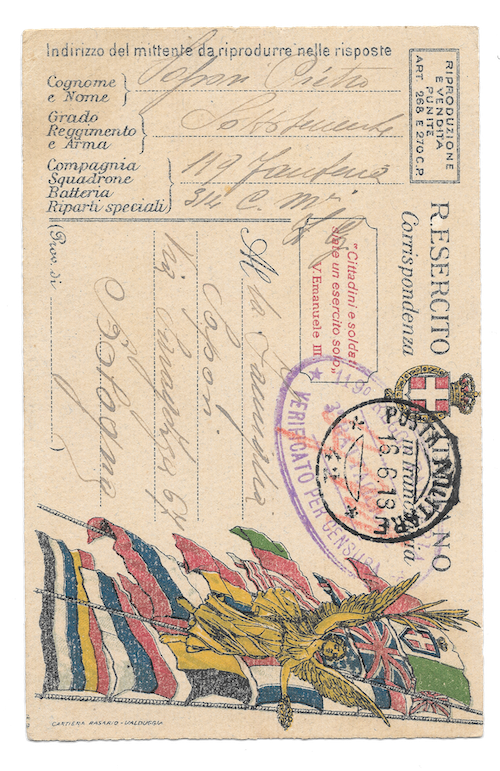 Indirizzo del mittente da riprodurre nelle risposte
Cognome
e Nome
Pietro
Grado
Reggimento
e Arma
Sottotenente
Compagnia
Squadrone
Batteria
Riparti speciali
119 Fanteria
314 C. Mi
RIPRODUZIONE
E VENDITA
PUNITE
ART. 268 E 270 C.P.
R. ESERCITO
NO
Corrispondenza
in franchigia
"Cittadini e soldati
siate un esercito solo"
V. Emanuele III
POSTA MILITARE
16.6.18
VERIFICATO PER CENSURA
Alla Famiglia
Via Saragozza 67
Bologna
(Prov. di
CARTIERA ROSARIO - VALDUGGIA